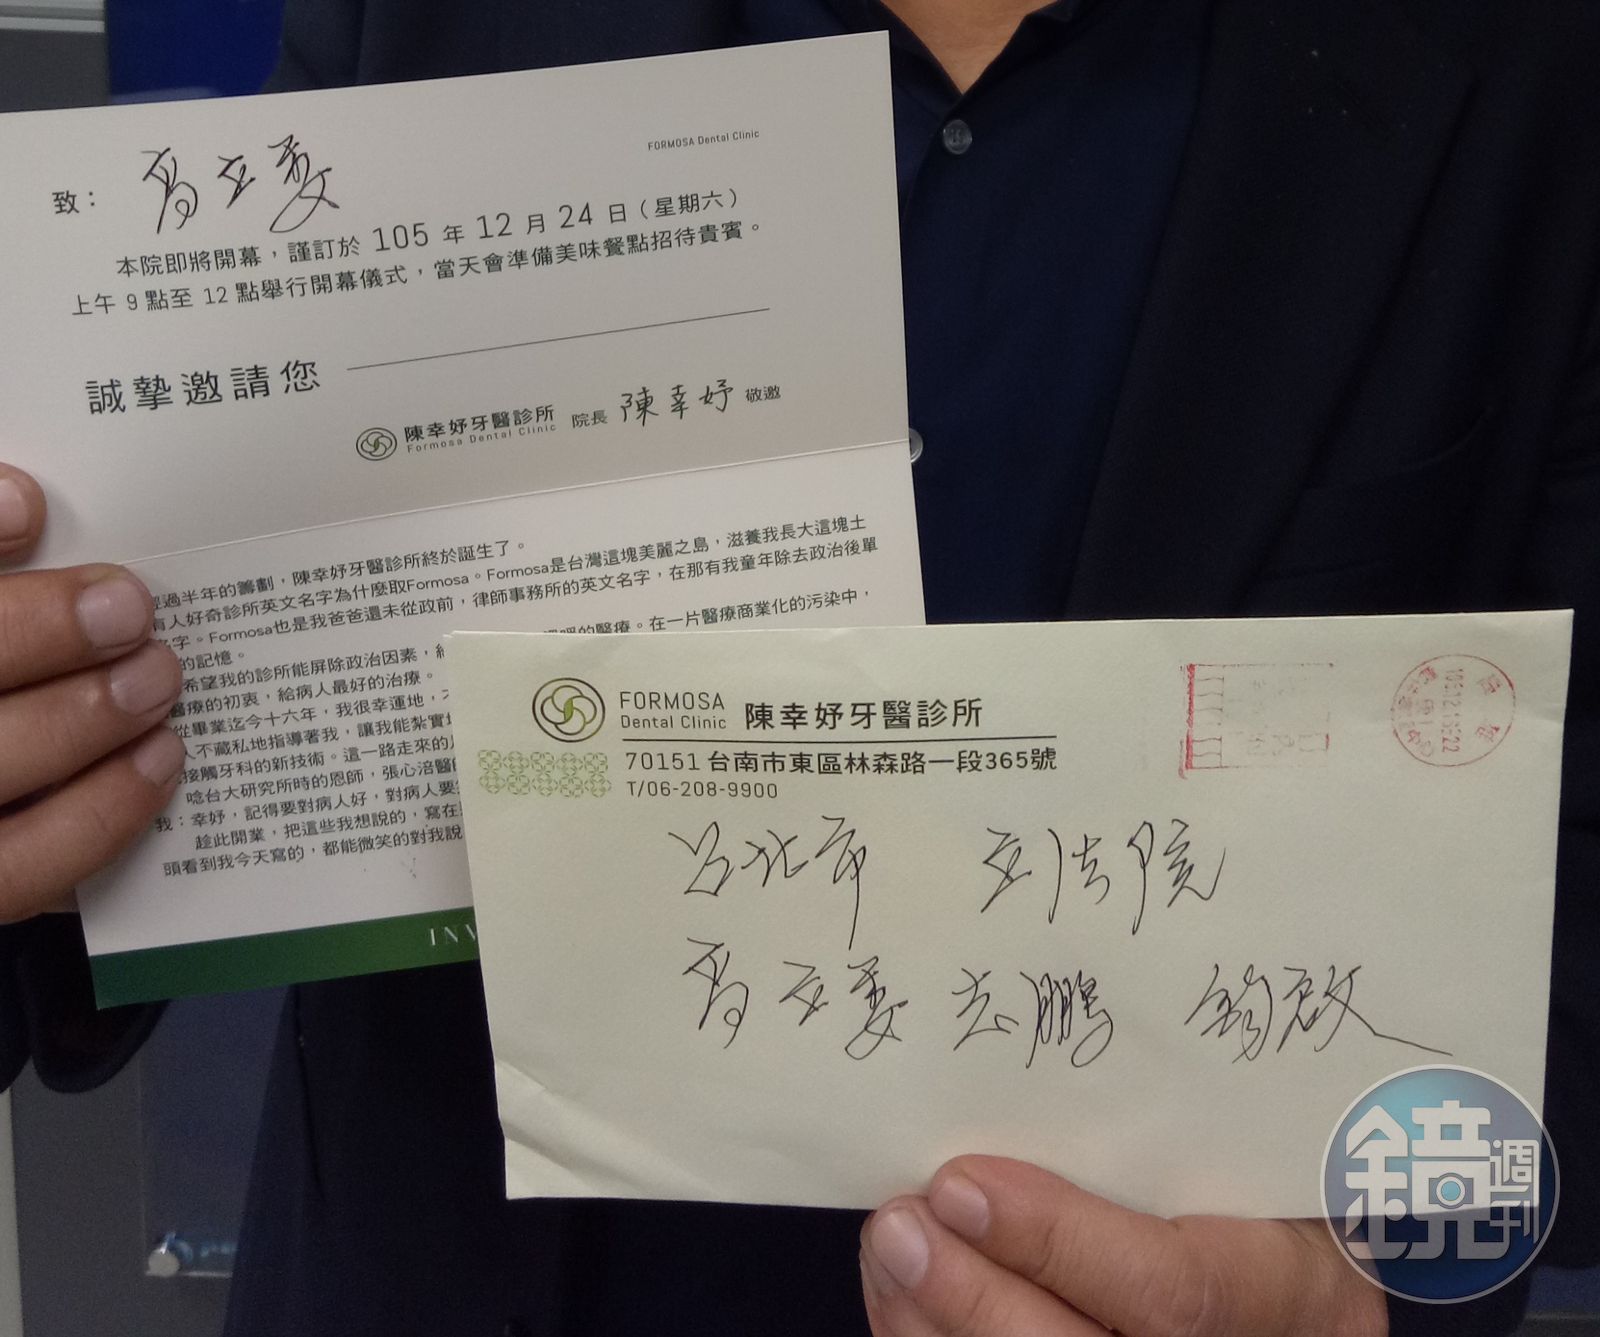 FORMOSA Dental Clinic
致： 高立委
本院即將開幕，謹訂於 105 年 12 月 24 日（星期六）
上午 9 點至 12 點舉行開幕儀式，當天會準備美味餐點招待貴賓。
誠摯邀請您
陳幸妤牙醫診所 院長 陳幸妤 敬邀
Formosa Dental Clinic
經過半年的籌劃，陳幸妤牙醫診所終於誕生了。
有人好奇診所英文名字為什麼取Formosa。Formosa是台灣這塊美麗之島，滋養我長大這塊土
名字。Formosa也是我爸爸還未從政前，律師事務所的英文名字，在那有我童年除去政治後單
的記憶。
希望我的診所能屏除政治因素，
的醫療。在一片醫療商業化的污染中，
醫療的初衷，給病人最好的治療。
從畢業迄今十六年，我很幸運地，
人不藏私地指導著我，讓我能紮實
接觸牙科的新技術。這一路走來的
唸台大研究所時的恩師，張心涪醫
我：幸妤，記得要對病人好，對病人要
趁此開業，把這些我想說的，寫在
頭看到我今天寫的，都能微笑的對我說
INV
FORMOSA
Dental Clinic 陳幸妤牙醫診所
70151 台南市東區林森路一段365號
T/06-208-9900
台北市 立法院
高立委 志鵬 鈞啟
鏡週刊